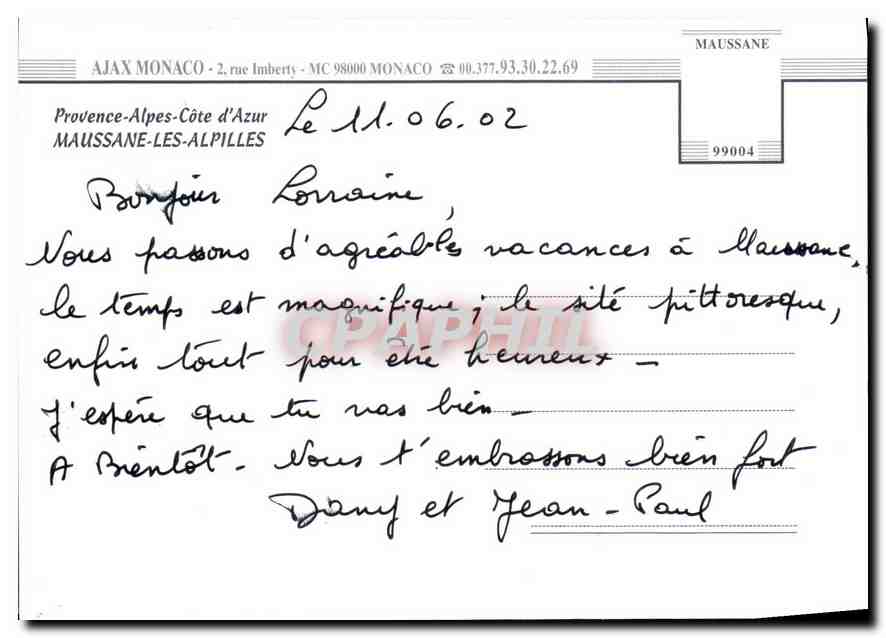 AJAX MONACO - 2, rue Imberty - MC 98000 MONACO ☎ 00.377.93.30.22.69
MAUSSANE
99004
Provence-Alpes-Côte d'Azur
MAUSSANE-LES-ALPILLES
Le 11.06.02
Bonjour Lorraine,
Nous passons d'agréables vacances à Maussane,
le temps est magnifique; le sité pittoresque,
enfin tout pour être heureux -
J'espére que tu vas bien -
A Bientôt - Nous t'embrassons bien fort
Dany et Jean-Paul
CPAPHIL